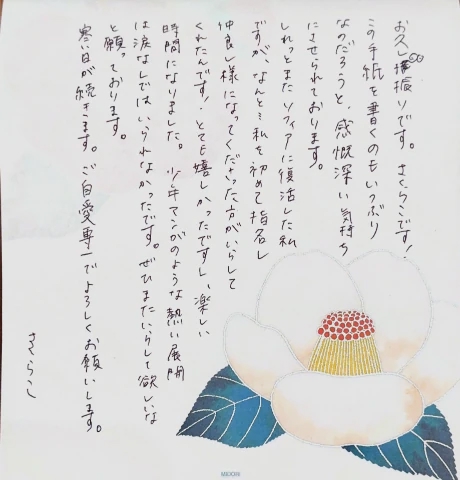 お久し振りです。さくらこです!
この手紙を書くのもいつぶり
なのだろうと、感慨深い気持ち
にさせられております。
しれっとまたソフィアに復活した私
ですが、なんと…私を初めて指名し
仲良し様になってくださった方がいらして
くれたんです! とても嬉しかったですし、楽しい
時間になりました。少年マンガのような熱い展開
は涙なしではいられなかったです。ぜひまたいらして欲しいな
と願っております。
寒い日が続きます。ご自愛専一でよろしくお願いします。
さくらこ
MIDORI